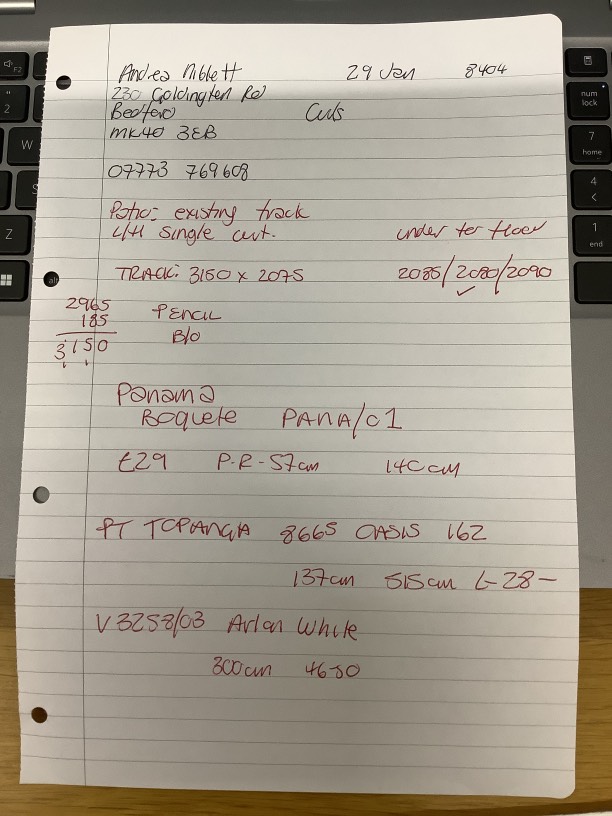 Andrea Niblett 29 Jan 8404
230 Goldington Rd
Bedford Curts
MK40 3EB
07773 769608
Patio: existing track
L/H single curt. under ter floor
TRACK: 3150 x 2075 2085/2080/2090
2965
185
3150
PENCIL
B/O
Panama
Boquete PANA/01
£29 P.R-57cm 140cm
PT TOPANGA 8665 OASIS 162
137cm 51.5cm £-28-
V3258/03 Arlan White
300cm 46-50
F2
"
2
W
S
Z
num
lock
7
home
4
<
1
end